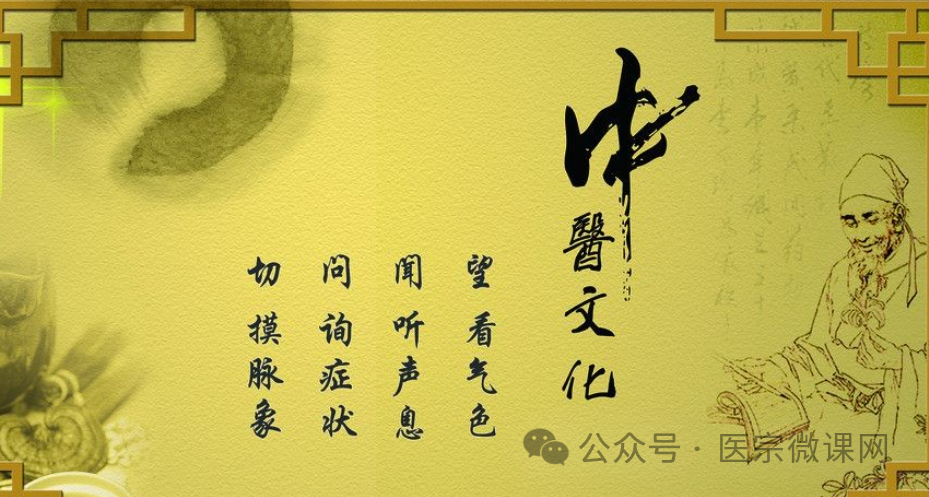 中醫文化
望 看气色
闻 听声息
问 询症状
切 摸脉象
公众号 · 医宗微课网